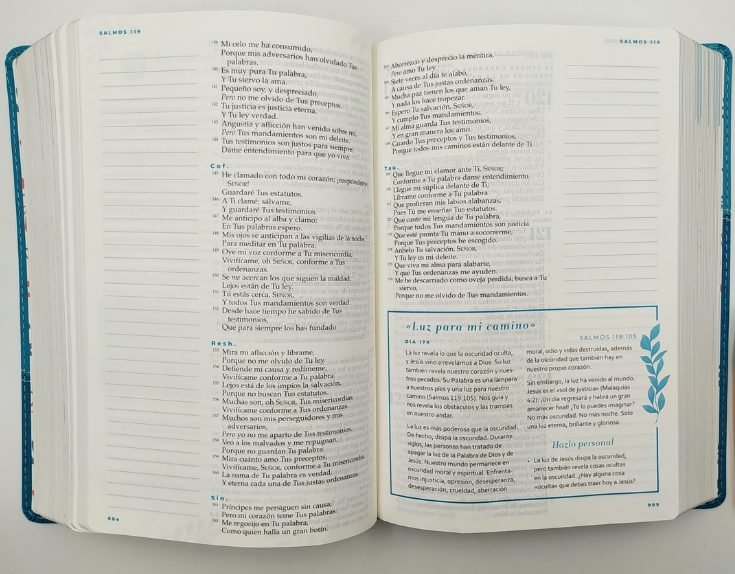 SALMOS 119
139 Mi celo me ha consumido,
Porque mis adversarios han olvidado Tus
palabras.
140 Es muy pura Tu palabra,
Y Tu siervo la ama.
141 Pequeño soy, y despreciado,
Pero no me olvido de Tus preceptos.
142 Tu justicia es justicia eterna,
Y Tu ley verdad.
143 Angustia y aflicción han venido sobre mí,
Pero Tus mandamientos son mi deleite.
144 Tus testimonios son justos para siempre;
Dame entendimiento para que yo viva.
Cof.
145 He clamado con todo mi corazón; ¡respóndeme,
SEÑOR!
Guardaré Tus estatutos.
146 A Ti clamé; sálvame,
Y guardaré Tus testimonios.
147 Me anticipo al alba y clamo;
En Tus palabras espero.
148 Mis ojos se anticipan a las vigilias de la noche,
Para meditar en Tu palabra.
149 Oye mi voz conforme a Tu misericordia;
Vivifícame, oh SEÑOR, conforme a Tus
ordenanzas.
150 Se me acercan los que siguen la maldad;
Lejos están de Tu ley.
151 Tú estás cerca, SEÑOR,
Y todos Tus mandamientos son verdad.
152 Desde hace tiempo he sabido de Tus
testimonios,
Que para siempre los has fundado.
Resh.
153 Mira mi aflicción y líbrame,
Porque no me olvido de Tu ley.
154 Defiende mi causa y redímeme;
Vivifícame conforme a Tu palabra.
155 Lejos está de los impíos la salvación,
Porque no buscan Tus estatutos.
156 Muchas son, oh SEÑOR, Tus misericordias;
Vivifícame conforme a Tus ordenanzas.
157 Muchos son mis perseguidores y mis
adversarios,
Pero yo no me aparto de Tus testimonios.
158 Veo a los malvados y me repugnan,
Porque no guardan Tu palabra.
159 Mira cuánto amo Tus preceptos;
Vivifícame, SEÑOR, conforme a Tu misericordia.
160 La suma de Tu palabra es verdad,
Y eterna cada una de Tus justas ordenanzas.
Sin.
161 Príncipes me persiguen sin causa,
Pero mi corazón teme Tus palabras.
162 Me regocijo en Tu palabra,
Como quien halla un gran botín.
904
SALMOS 119
163 Aborrezco y desprecio la mentira,
Pero amo Tu ley.
164 Siete veces al día te alabo,
A causa de Tus justas ordenanzas.
165 Mucha paz tienen los que aman Tu ley,
Y nada los hace tropezar.
166 Espero Tu salvación, SEÑOR,
Y cumplo Tus mandamientos.
167 Mi alma guarda Tus testimonios,
Y en gran manera los amo.
168 Guardo Tus preceptos y Tus testimonios,
Porque todos mis caminos están delante de Ti.
Tau.
169 Que llegue mi clamor ante Ti, SEÑOR;
Conforme a Tu palabra dame entendimiento.
170 Llegue mi súplica delante de Ti;
Líbrame conforme a Tu palabra.
171 Que profieran mis labios alabanzas,
Pues Tú me enseñas Tus estatutos.
172 Que cante mi lengua de Tu palabra,
Porque todos Tus mandamientos son justicia.
173 Que esté pronta Tu mano a socorrerme,
Porque Tus preceptos he escogido.
174 Anhelo Tu salvación, SEÑOR,
Y Tu ley es mi deleite.
175 Que viva mi alma para alabarte,
Y que Tus ordenanzas me ayuden.
176 Me he descarriado como oveja perdida; busca a Tu
siervo,
Porque no me olvido de Tus mandamientos.
«Luz para mi camino»
DÍA 179
SALMOS 119:105
La luz revela lo que la oscuridad oculta,
y Jesús vino a revelarnos a Dios. Su luz
también revela nuestro corazón y nues-
tros pecados. Su Palabra es una lámpara
a nuestros pies y una luz para nuestro
camino (Salmos 119:105). Nos guía y
nos revela los obstáculos y las trampas
en nuestro andar.
La luz es más poderosa que la oscuridad.
De hecho, disipa la oscuridad. Durante
siglos, las personas han tratado de
apagar la luz de la Palabra de Dios y de
Jesús. Nuestro mundo permanece en
oscuridad moral y espiritual. Enfrenta-
mos injusticia, opresión, desesperanza,
desesperación, crueldad, aberración
moral, odio y vidas destruidas, además
de la oscuridad que también hay en
nuestro propio corazón.
Sin embargo, la luz ha venido al mundo.
Jesús es el «sol de justicia» (Malaquías
4:2). ¡Un día regresará y habrá un gran
amanecer final! ¿Te lo puedes imaginar?
No más oscuridad. No más noche. Solo
una luz eterna, brillante y gloriosa.
Hazlo personal
• La luz de Jesús disipa la oscuridad,
pero también revela cosas ocultas
en la oscuridad. ¿Hay alguna cosa
«oculta» que debas traer hoy a Jesús?
905